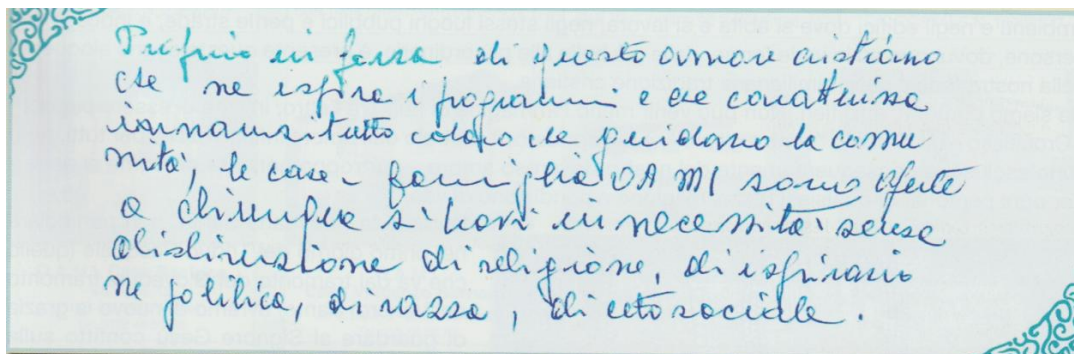 Proprio in forza di questo amore cristiano
che ne ispira i programmi e che caratterizza
innanzitutto coloro che guidano la comu
nità, le case-famiglia OAMI sono aperte
a chiunque si trovi in necessità senza
distinzione di religione, di ispirazio
ne politica, di razza, di ceto sociale.